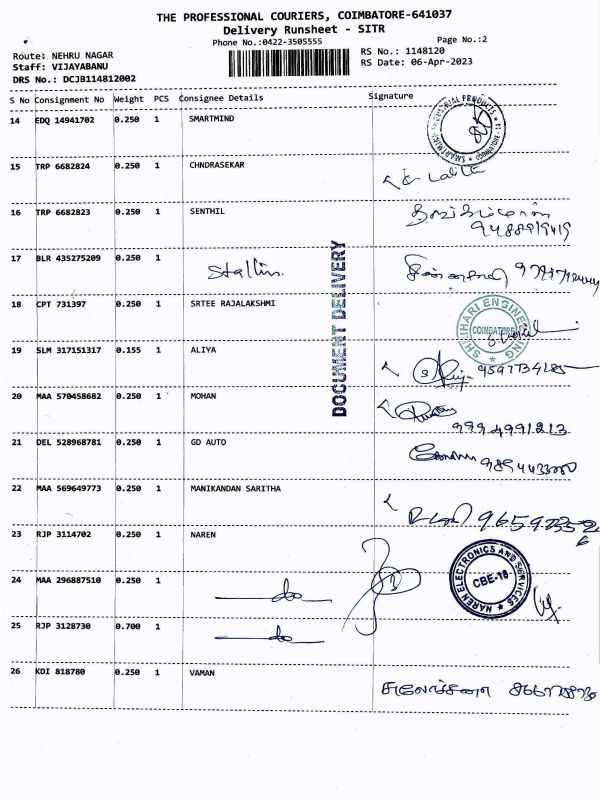 THE PROFESSIONAL COURIERS, COIMBATORE-641037
Delivery Runsheet - SITR
Phone No.:0422-3505555 Page No.:2
Route: NEHRU NAGAR RS No.: 1148120
Staff: VIJAYABANU RS Date: 06-Apr-2023
DRS No.: DCJB114812002
S No Consignment No Weight PCS Consignee Details Signature
14 EDQ 14941702 0.250 1 SMARTMIND
15 TRP 6682824 0.250 1 CHNDRASEKAR
16 TRP 6682823 0.250 1 SENTHIL
9488919419
17 BLR 435275209 0.250 1 Stallin.
DOCUMENT DELIVERY
18 CPT 731397 0.250 1 SRTEE RAJALAKSHMI
SHRIHARI ENGINEERING
COIMBATORE
19 SLM 317151317 0.155 1 ALIYA
20 MAA 570458682 0.250 1 MOHAN
9994991213
21 DEL 528968781 0.250 1 GD AUTO
22 MAA 569649773 0.250 1 MANIKANDAN SARITHA
23 RJP 3114702 0.250 1 NAREN
NAREN ELECTRONICS AND SERVICES
CBE-18
24 MAA 296887510 0.250 1 do
25 RJP 3128730 0.700 1 do
26 KDI 818780 0.250 1 VAMAN